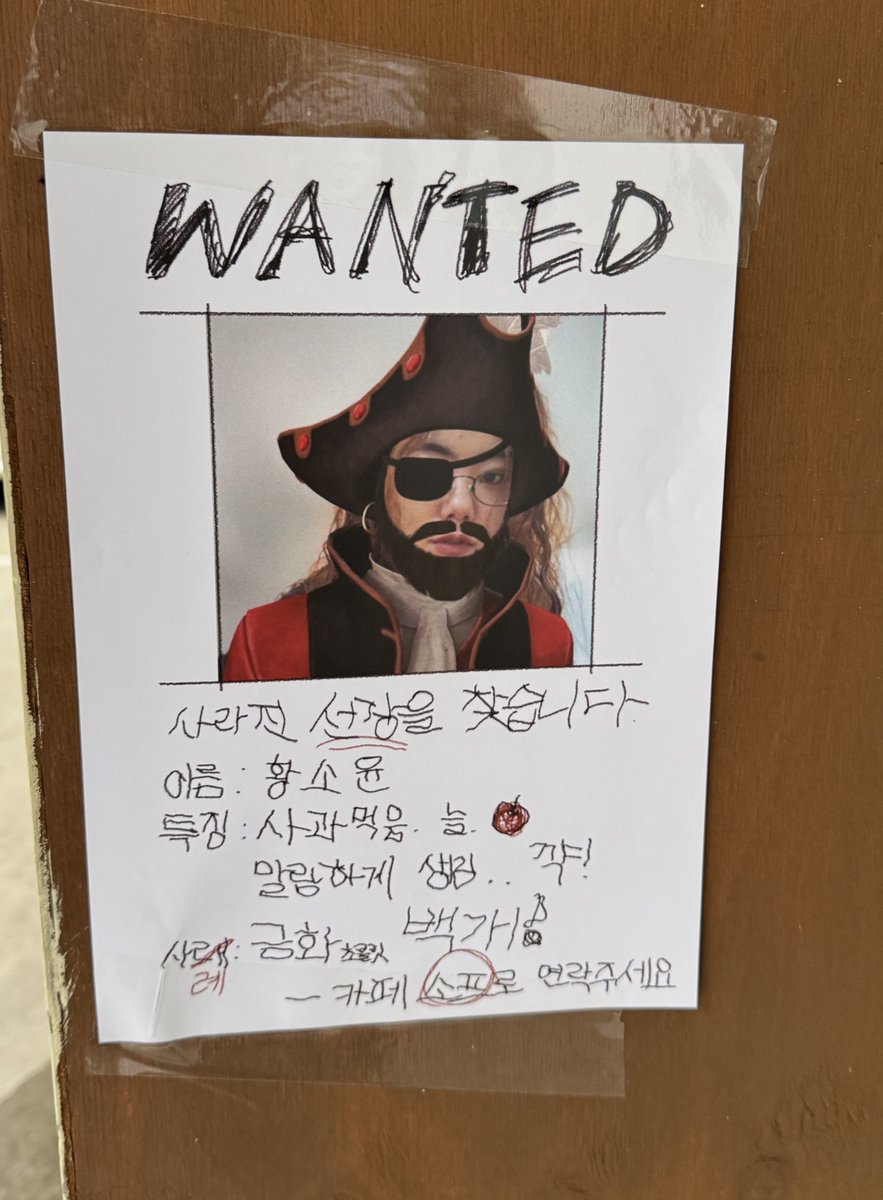 WANTED
사라진 선장을 찾습니다.
이름 : 황소윤
특징 : 사과먹음. 늘.
말랑하게 생김.. 꺅!
사례 : 금화 초콜릿 백개!
— 카페 소프로 연락주세요